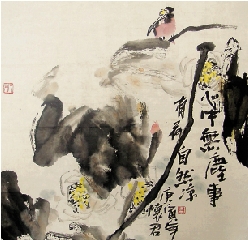 心中無塵事
有荷自然凉
庚寅年
君